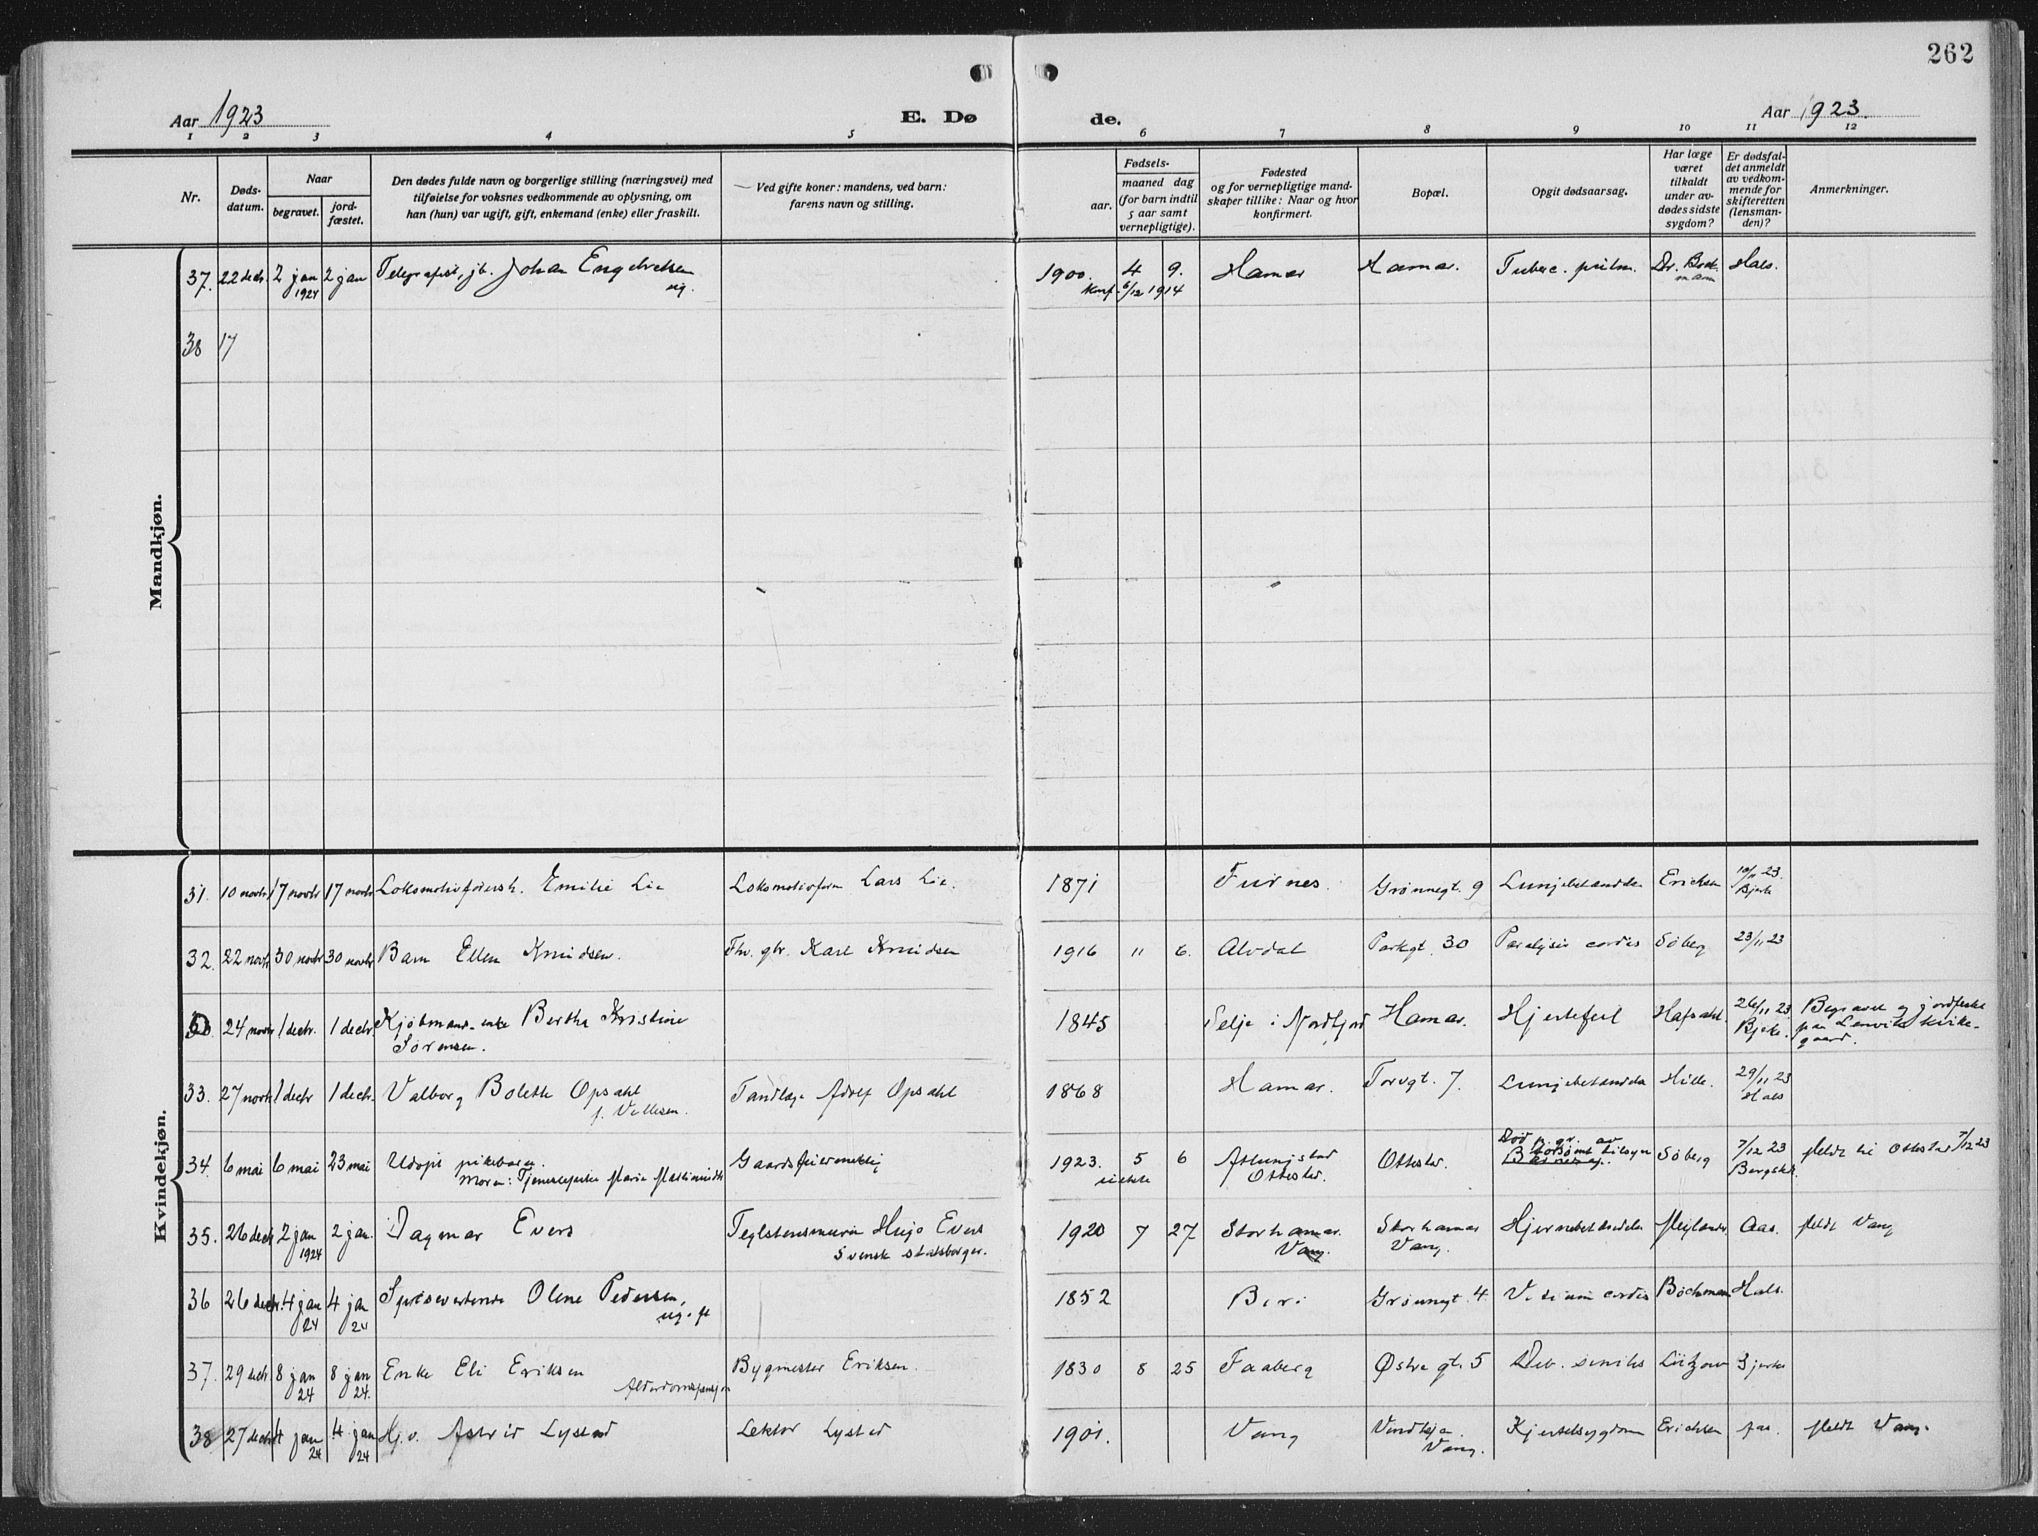 262
Aar 1923
E. Dø de.
Aar 1923.
1 2 3 4 5 6 7 8 9 10 11 12
Nr.
Døds-
datum.
Naar
begravet.
jord-
fæstet.
Den dødes fulde navn og borgerlige stilling (næringsvei) med
tilføielse for voksnes vedkommende av oplysning, om
han (hun) var ugift, gift, enkemand (enke) eller fraskilt.
Ved gifte koner: mandens, ved barn:
farens navn og stilling.
Fødsels-
aar.
maaned dag
(for barn indtil
5 aar samt
vernepligtige).
Fødested
og for vernepligtige mand-
skaper tillike: Naar og hvor
konfirmert.
Bopæl.
Opgit dødsaarsag.
Har læge
været
tilkaldt
under av-
dødes sidste
sygdom?
Er dødsfal-
det anmeldt
av vedkom-
mende for
skifteretten
(lensman-
den)?
Anmerkninger.
Mandkjøn.
37. 22 decbr. 2 jan 2 jan Telegrafist, jb. Johan Engebretsen 1900. 4 9. Hamar Hamar. Tuberc. pulm. Dr. Bock- Hals.
1924 ug. konf. 6/12 1914 mann
38 17
Kvindekjøn.
31. 10 novbr 17 novbr 17 novbr Lokomotivførersh. Emilie Lie Lokomotivfører Lars Lie. 1871 Furnes. Grønnegt. 9 Lungebetændelse Ericksen 10/11 23.
Bjerke
32. 22 novbr 30 novbr 30 novbr Barn Ellen Knudsen. Fhv. gbr. Karl Knudsen 1916 11 6. Alvdal Parkgt. 30 Paralysis cordis Søberg 23/11 23
24 novbr 1 decbr. 1 decbr Kjøbmands-enke Bertha Kristine 1845 Selje i Nordfjord Hamar. Hjertefeil Hafsahl 26/11 23 Begravet og jordfestet
Sørensen. Bjerke. paa Lenvik kirke-
gaard.
33. 27 novbr 1 decbr 1 decbr. Valborg Bolette Opsahl Tandlæge Adolf Opsahl 1868 Hamar. Torvgt. 7. Lungebetændelse Hille. 29/11 23
f. Hals
34. 6 mai 6 mai 23 mai Udøpt pikebarn. Gaards 1923. 5 6 Atlungstad Ottestad. Død p. gr. av Søberg 7/12 23 Meldt til Ottestad 7/12 23
Moren: Tjenestepike Marie uekte Ottestad. tilsyn
35. 26 decbr 2 jan 2 jan. Dagmar Evers Teglstensmurer Hugo Evers 1920 7 27 Storhamar. Storhamar Hjernebetændelse Mejlænder Aas. Meldt Vang
1924 svensk statsborger. Vang. Vang.
36 26 decbr. 4 jan 4 jan Spisevertinde Olene Pedersen, 1852 Biri Grønnegt. 4. Vitium cordis Bochmann Hals.
24 24 ugift
37. 29 decbr 8 jan 8 jan Enke Eli Eriksen Bygmester Eriksen. 1830 8 25 Faaberg Østre gt. 5 Deb. senilis Lützow Bjerke
24 24.
38 27 decbr 4 jan 4 jan Hj.v. Astrid Lystad Lektor Lystad 1901. Vang Vang. Hjertesygdom Ericksen Aas. Meldt Vang.
24 24